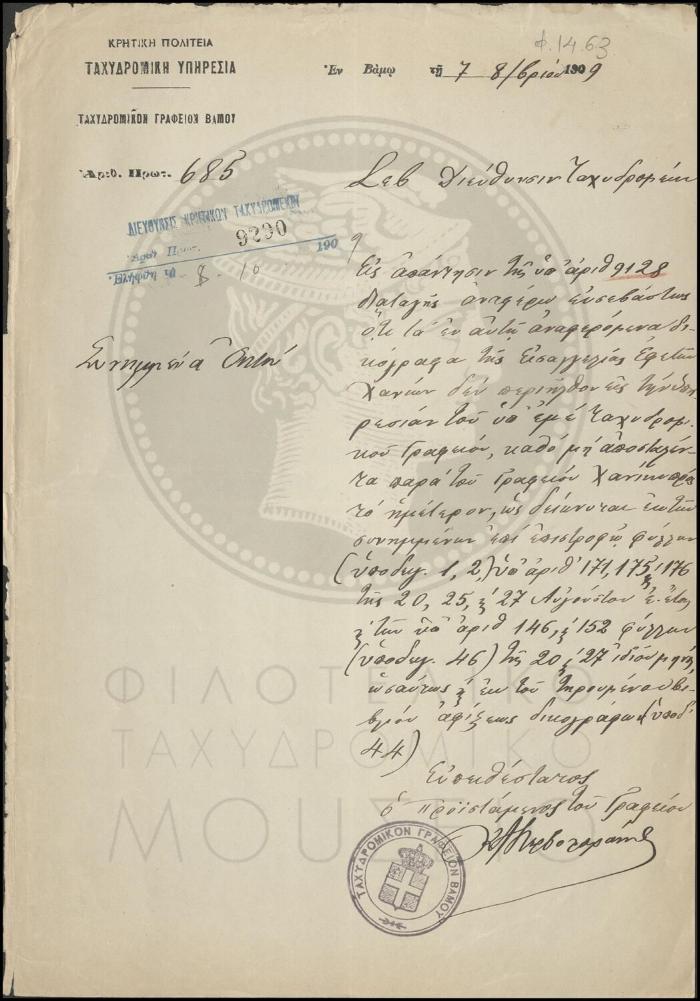 φ. 1463
ΚΡΗΤΙΚΗ ΠΟΛΙΤΕΙΑ
ΤΑΧΥΔΡΟΜΙΚΗ ΥΠΗΡΕΣΙΑ
Ἐν Βάμῳ τῇ 7 8/βρίου 1909
ΤΑΧΥΔΡΟΜΙΚΟΝ ΓΡΑΦΕΙΟΝ ΒΑΜΟΥ
Ἀριθ. Πρωτ. 685
Σεβ Διεύθυνσιν Ταχυδρομείων
ΔΙΕΥΘΥΝΣΙΣ ΚΡΗΤΙΚΟΥ ΤΑΧΥΔΡΟΜΕΙΟΥ
Ἀριθ. Πρωτ. 9290
8 - 10 1909
Εἰς ἀπάντησιν τῆς ὑπ ἀριθ 9128
διαταγῆς ἀναφέρω εὐσεβάστως
ὅτι τὰ ἐν αὐτῇ ἀναφερόμενα δι
κόγραφα τῆς Εἰσαγγελίας Ἐφετῶν
Χανίων δὲν περιῆλθον εἰς τὴν ὑπη
ρεσίαν τοῦ ὑπ ἐμὲ Ταχυδρομι
κοῦ Γραφείου, καθὸ μὴ ἀποσταλέν
τα παρὰ τοῦ Γραφείου Χανίων πρὸς
τὸ ἡμέτερον, ὡς δείκνυται ἐκ τῶν
συνημμένων ἐπὶ ἐπιστροφῇ φύλλων
(ὑποδειγ. 1, 2,) ὑπ ἀριθ 171, 175, 176
τῆς 20, 25, & 27 Αὐγούστου ἐ. ἔτους
& τῶν ὑπ ἀριθ 146, & 152 φύλλων
(ὑποδειγ. 46) τῆς 20 & 27 ἰδίου μηνός,
ὡσαύτως & ἐκ τοῦ τηρουμένου βι
βλίου ἀφίξεως δικογράφων (ὑποδ
44)
Συνημμένα
Εὐπειθέστατος
ὁ προϊστάμενος τοῦ Γραφείου
ΤΑΧΥΔΡΟΜΙΚΟΝ ΓΡΑΦΕΙΟΝ ΒΑΜΟΥ
ΦΙΛΟΤΕΛΙΚΟ
ΤΑΧΥΔΡΟΜΙΚΟ
ΜΟΥΣΕΙΟ